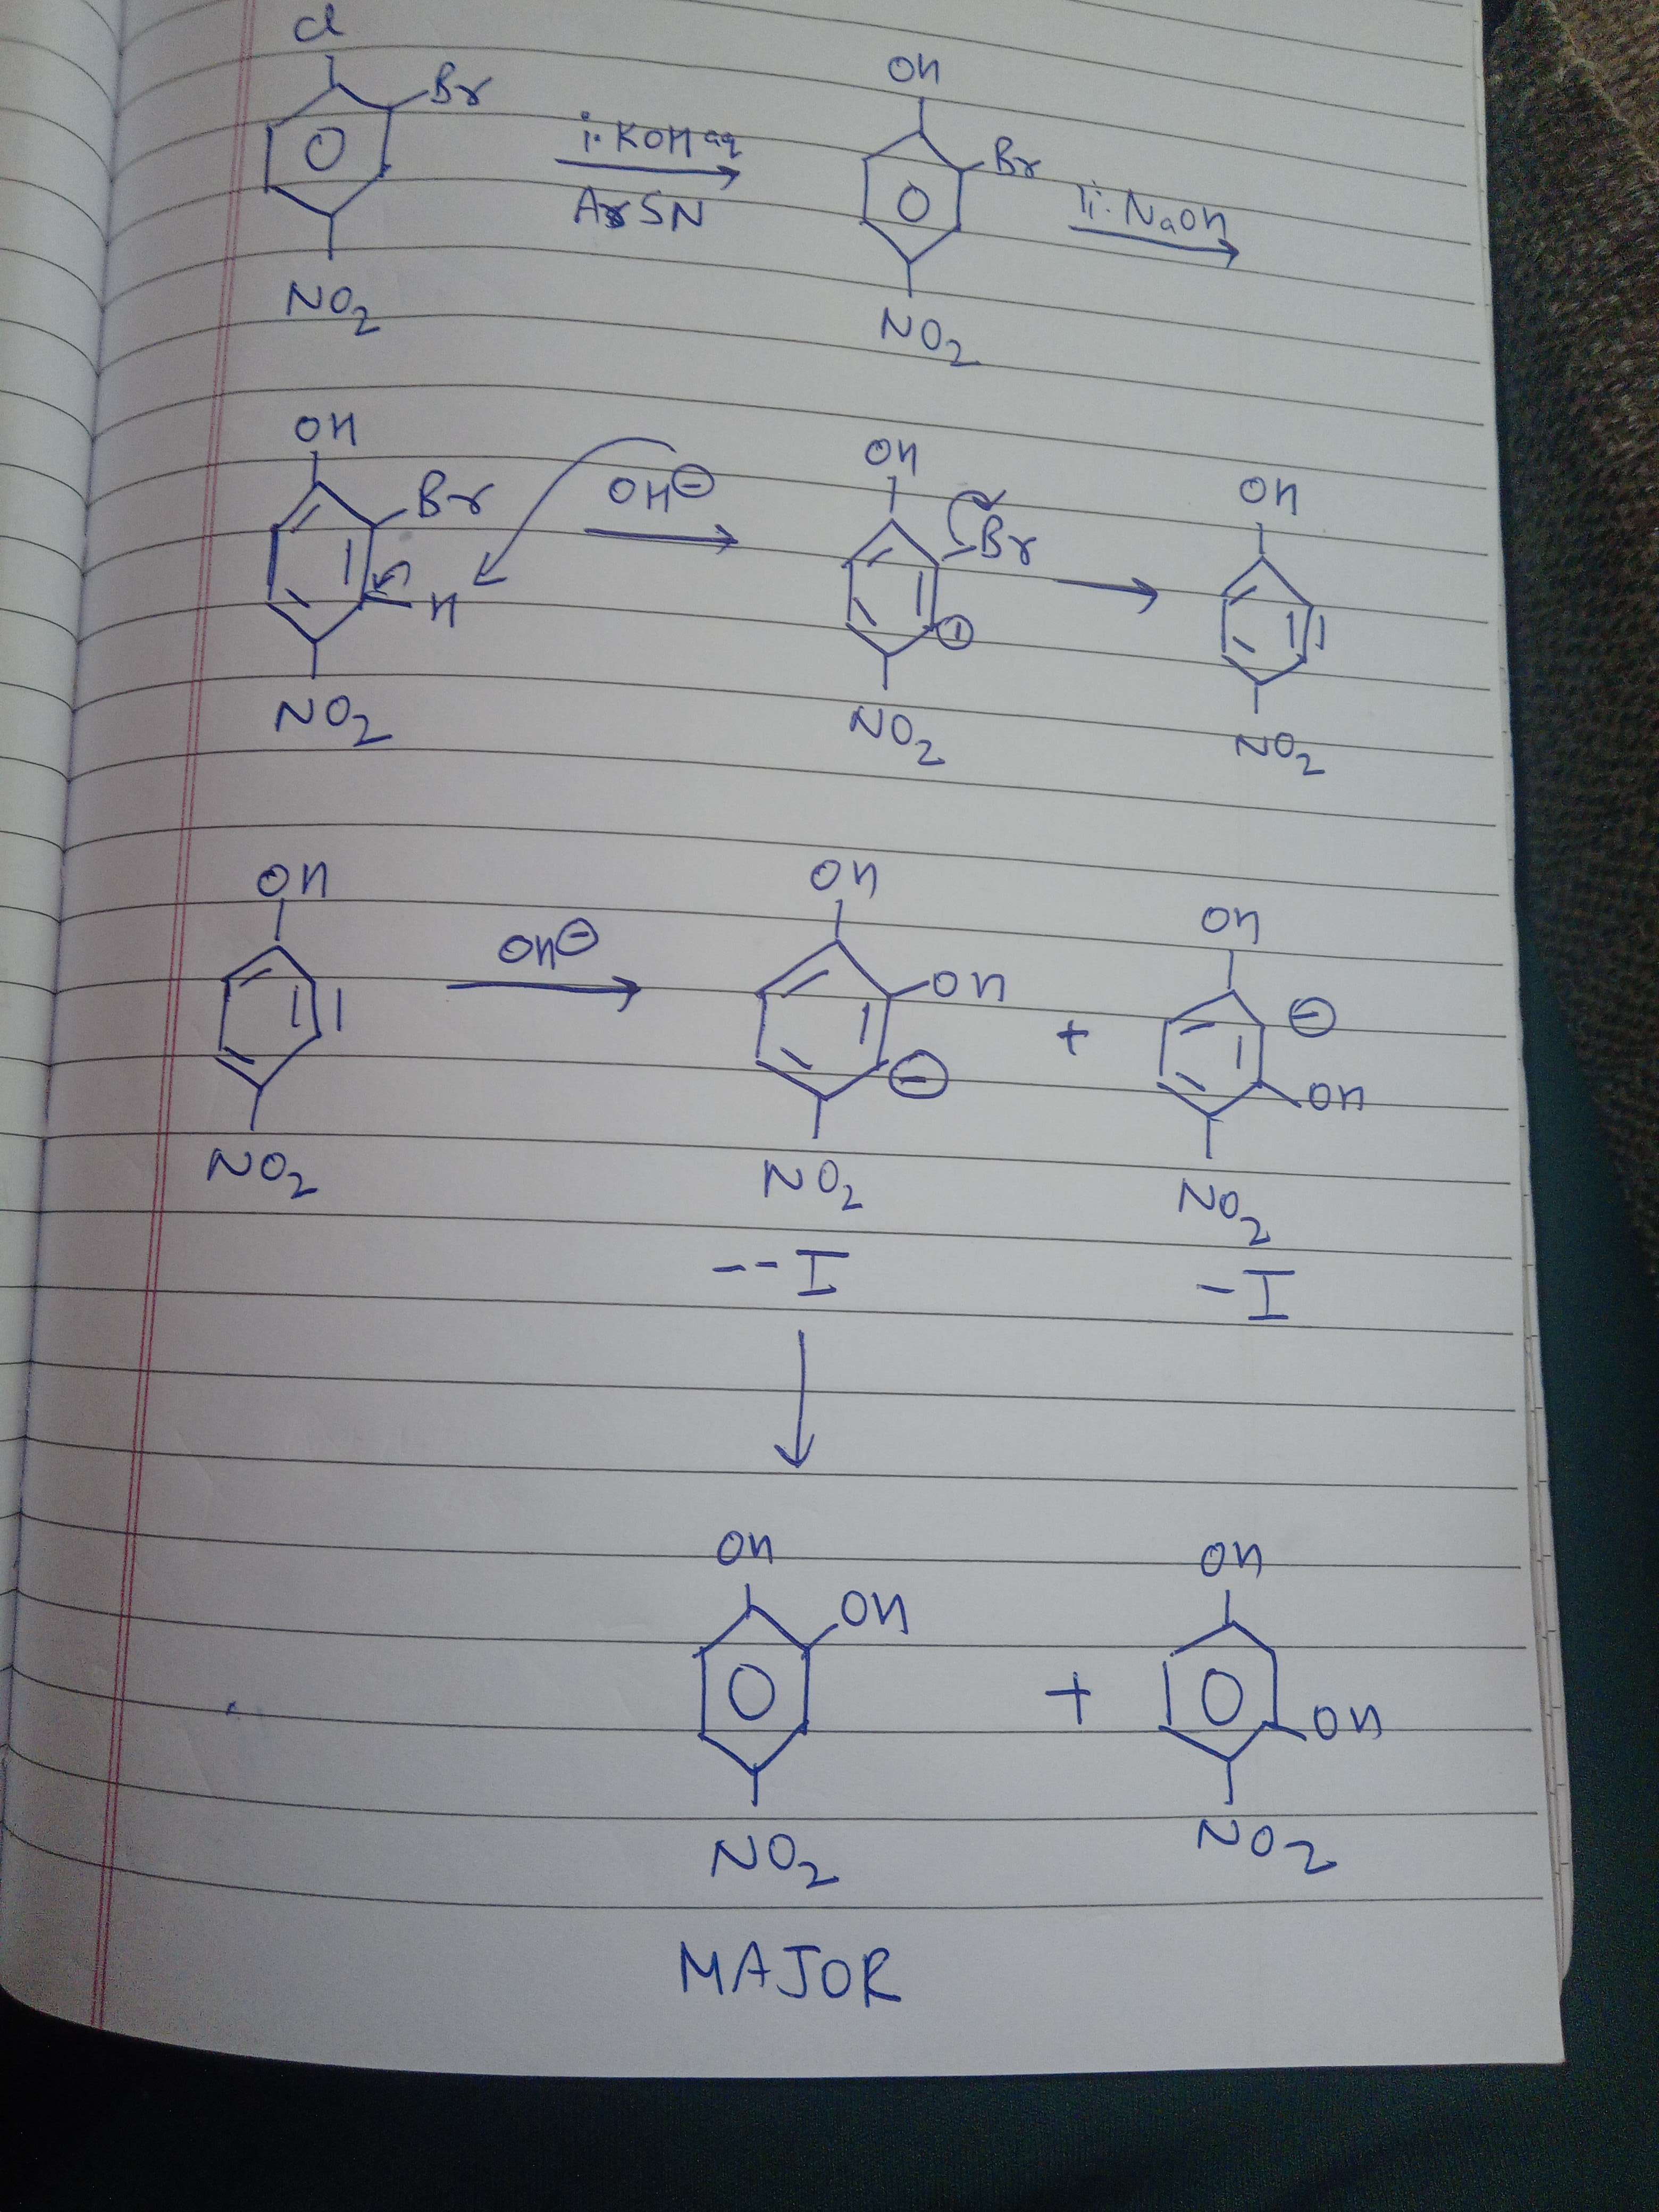 Cl
Br
i. KOH aq
ArSN
NO2
OH
Br
ii. NaOH
NO2
OH
Br
H
NO2
OH⊖
OH
Br
⊖
NO2
OH
NO2
OH
NO2
OH⊖
OH
OH
⊖
NO2
--I
+
OH
⊖
OH
NO2
-I
OH
OH
NO2
+
OH
OH
NO2
MAJOR